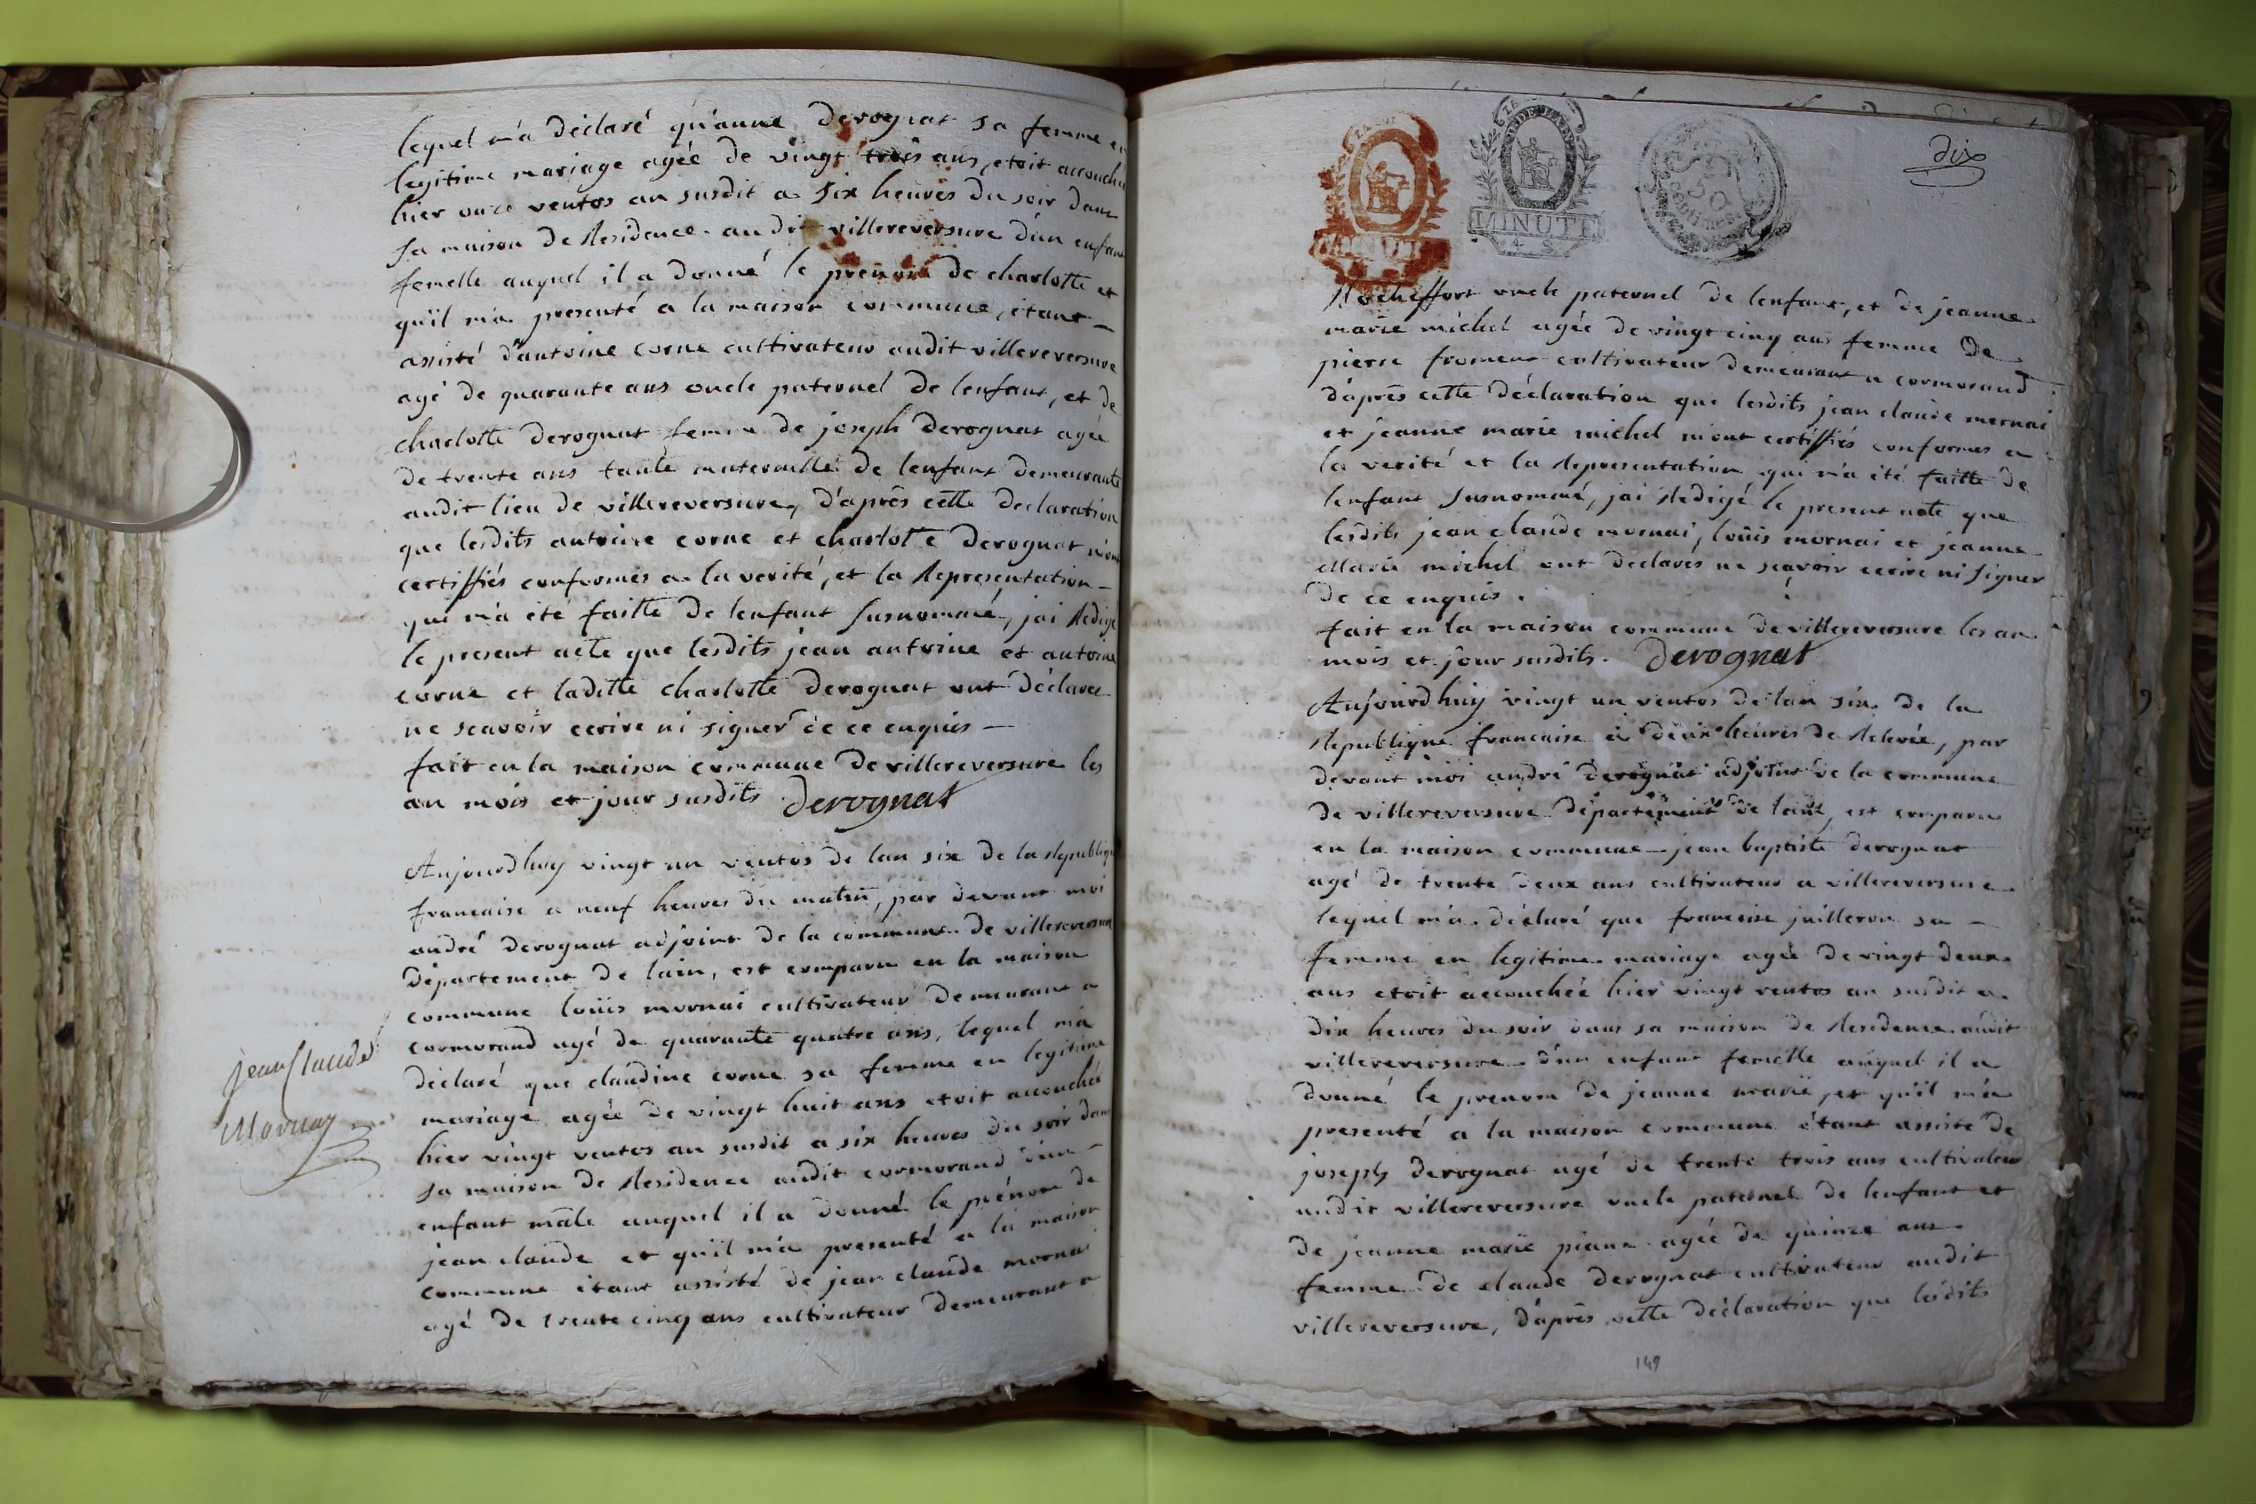 lequel m'a déclaré qu'anne derognat sa femme en
legitime mariage agée de vingt trois ans, etoit accouchée
hier onze ventos an susdit a six heures du soir dans
sa maison de Residence audit villereversure d'un enfant
femelle auquel il a donné le prenom de charlotte et
qu'il m'a presenté a la maison commune, étant
assisté d'antoine corne cultivateur audit villereversure
agé de quarante ans oncle paternel de lenfant, et de
charlotte derognat femme de joseph derognat agée
de trente ans tante maternelle de lenfant demeurante
audit lieu de villereversure, d'aprês cette declaration
que lesdits antoine corne et charlotte derognat m'ont
certiffiés conformes a la verité, et la Representation
qui m'a été faitte de lenfant susnommé, jai Redigé
le present acte que lesdits jean antoine et antoine
corne et laditte charlotte derognat ont déclarés
ne scavoir ecrire ni signer de ce enquis
fait en la maison commune de villereversure les
an mois et jour susdits derognat
Aujourdhuy vingt un ventos de lan six de la Republique
francaise a neuf heures du matin, par devant moi
andré derognat adjoint de la commune de villereversure
département de lain, est comparu en la maison
commune loüis mornai cultivateur demeurant a
cormorand agé de quarante quatre ans, lequel m'a
déclaré que claudine corne sa femme en legitime
mariage agée de vingt huit ans etoit accouchée
hier vingt ventos an susdit a six heures du soir dans
sa maison de Residence audit cormorand d'un
enfant mâle auquel il a donné le prénom de
jean claude et qu'il m'a presenté a la maison
commune étant assisté de jean claude mornai
agé de trente cinq ans cultivateur demeurant a
jean Claude
Mornay
dix
MINUTE
4 S
50
Centimes
Rocheffort oncle paternel de lenfant, et de jeanne
marie michel agée de vingt cinq ans femme de
pierre froment cultivateur demeurant a cormorand
d'aprês cette déclaration que lesdits jean claude mornai
et jeanne marie michel m'ont certiffiés conformes a
la verité et la Representation qui m'a été faitte de
lenfant susnommé, jai Redigé le present acte que
lesdits jean claude mornai, loüis mornai et jeanne
Marie michel ont declarés ne scavoir ecrire ni signer
de ce enquis.
fait en la maison commune de villereversure les an
mois et jour susdits. derognat
Aujourdhuy vingt un ventos de lan six de la
Republique francaise a deux heures de Relevée, par
devant moi andré derognat adjoint de la commune
de villereversure département de lain, est comparu
en la maison commune jean baptiste derognat
agé de trente deux ans cultivateur a villereversure
lequel m'a déclaré que francoise juilleron sa
femme en legitime mariage agée de vingt deux
ans etoit accouchée hier vingt ventos an susdit a
dix heures du soir dans sa maison de Residence audit
villereversure d'un enfant femelle auquel il a
donné le prenom de jeanne marie, et qu'il m'a
presenté a la maison commune étant assisté de
joseph derognat agé de trente trois ans cultivateur
audit villereversure oncle paternel de lenfant et
de jeanne marie piane agée de quinze ans
femme de claude derognat cultivateur audit
villereversure, d'aprês cette déclaration que lesdits
149